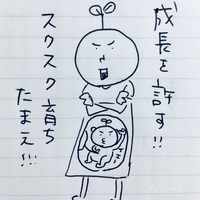 成長を許す!!
スクスク育ち
たまえ!!!